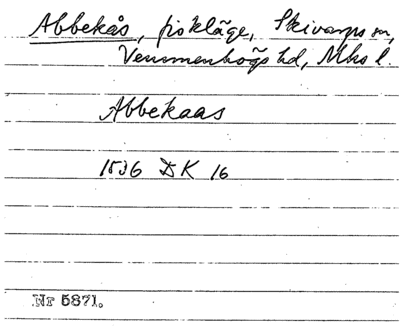 Abbekås, fiskläge, Skivarps sn,
Vemmenhögs hd, Mhs l.
Abbekaas
1536 DK 16
Nr 5871.